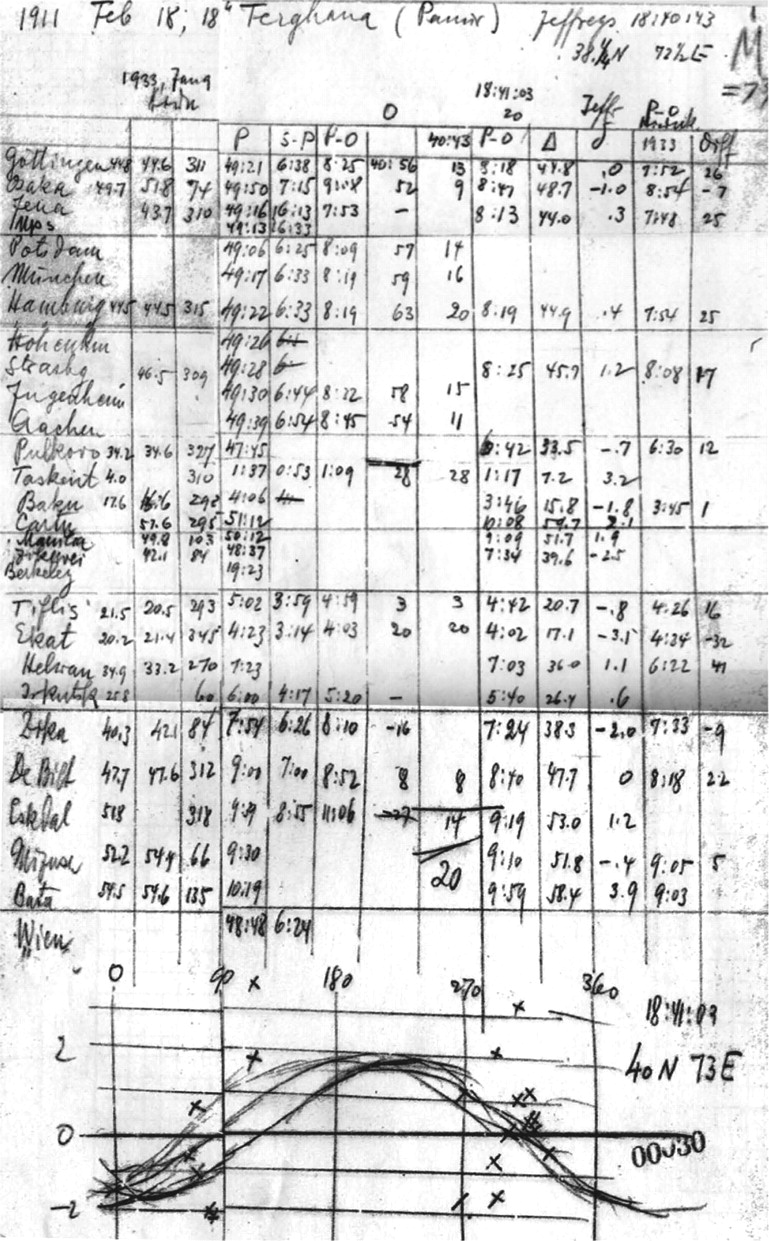 1911 Feb 18, 18h Ferghana (Pamir) Jeffreys 18:40:43
38¼N 72½E
M
=7
1933, Jang
O 18:41:03 Jeff P-O
20
P S-P P-O 40:43 P-O Δ 1933 Diff
Göttingen 44.8 44.6 311 49:21 6:38 8:25 40:56 13 8:18 44.8 .0 7:52 26
Osaka 49.7 51.8 74 49:50 7:15 9:08 52 9 8:47 48.7 -1.0 8:54 -7
Jena 43.7 310 49:16 6:13 7:53 — 8:13 44.0 .3 7:48 25
Ups 49:13 6:33
Potsdam 49:06 6:25 8:09 57 14
München 49:17 6:33 8:19 59 16
Hamburg 44.5 44.5 315 49:22 6:33 8:19 63 20 8:19 44.9 .4 7:54 25
Hohenhm 49:26
Strasbg 46.5 309 49:28 8:25 45.7 1.2 8:08 17
Jugenheim 49:30 6:44 8:22 58 15
Aachen 49:39 6:54 8:45 54 11
Pulkovo 34.2 34.6 327 47:45 6:42 33.5 -.7 6:30 12
Taskent 4.0 310 1:37 0:53 1:09 28 28 1:17 7.2 3.2
Baku 17.6 16.6 292 4:06 3:46 15.8 -1.8 3:45 1
57.6 295 51:12 10:08
Manila 49.8 103 50:12 9:09 51.7 1.9
42.1 84 48:37 7:34 39.6 -2.5
Berkeley 19:23
Tiflis 21.5 20.5 293 5:02 3:59 4:59 3 3 4:42 20.7 -.8 4:26 16
Ekat 20.2 21.4 345 4:23 3:14 4:03 20 20 4:02 17.1 -3.1 4:34 -32
Helwan 34.9 33.2 270 7:23 7:03 36.0 1.1 6:22 41
Irkutsk 25.8 60 6:00 4:17 5:20 — 5:40 26.4 .6
Zika 40.3 42.1 84 7:54 6:26 8:10 -16 7:24 38.3 -2.0 7:33 -9
De Bilt 47.7 47.6 312 9:00 7:00 8:52 8 8 8:40 47.7 0 8:18 22
Eskdal 51.8 318 9:39 8:55 11:06 -27 14 9:19 53.0 1.2
Mizusa 52.2 54.4 66 9:30 9:10 51.8 -.4 9:05 5
20
Bata 54.5 54.6 135 10:19 9:59 58.4 3.9 9:03
Wien 48:48 6:24
0 90 180 270 360
18:41:03
2
40N 73E
0
00030
-2